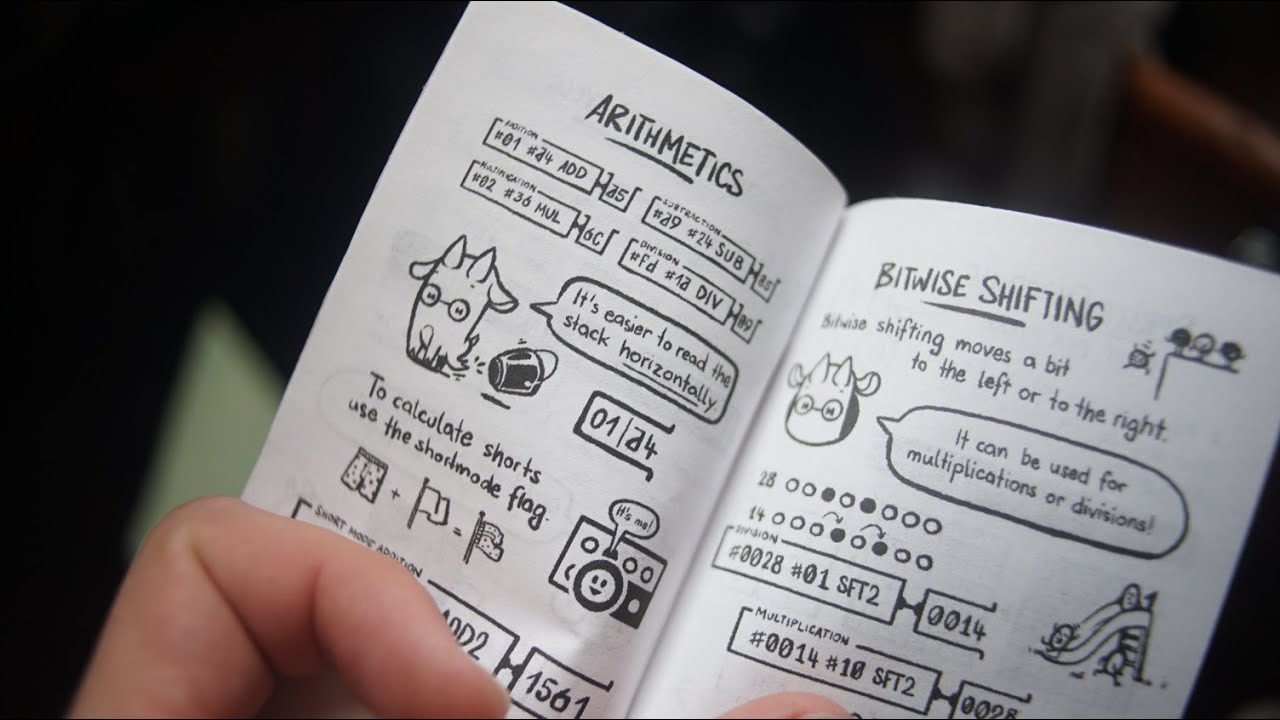 ARITHMETICS
ADDITION
#01 #a4 ADD
a5
MULTIPLICATION
#02 #36 MUL
6C
SUBTRACTION
#a9 #24 SUB
85
DIVISION
#fd #1a DIV
09
It's easier to read the
stack horizontally.
01/a4
To calculate shorts
use the shortmode flag.
+
=
It's me!
SHORT MODE ADDITION
ADD2
1561
BITWISE SHIFTING
Bitwise shifting moves a bit
to the left or to the right.
It can be used for
multiplications or divisions!
28
14
DIVISION
#0028 #01 SFT2
0014
MULTIPLICATION
#0014 #10 SFT2
0028